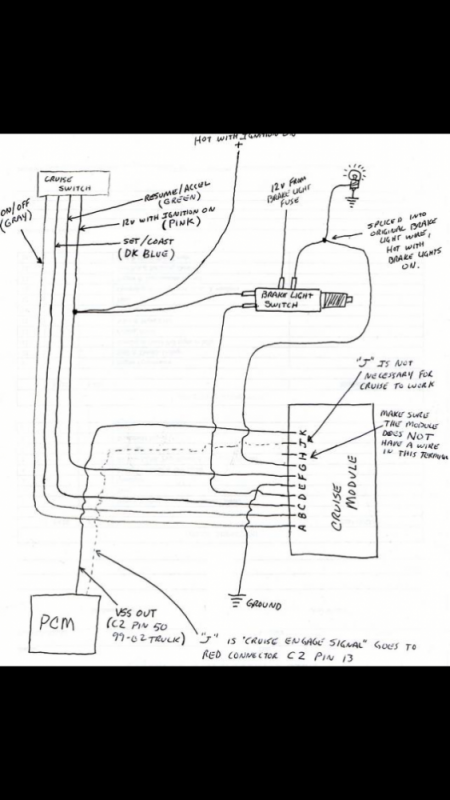 HOT WITH IGNITION ON
+
CRUISE
SWITCH
RESUME/ACCEL
(GREEN)
12V WITH IGNITION ON
(PINK)
SET/COAST
(DK BLUE)
ON/OFF
(GRAY)
12V FROM
BRAKE LIGHT
FUSE
SPLICED INTO
ORIGINAL BRAKE
LIGHT WIRE,
HOT WITH
BRAKE LIGHTS
ON.
BRAKE LIGHT
SWITCH
"J" IS NOT
NECESSARY FOR
CRUISE TO WORK
MAKE SURE
THE MODULE
DOES NOT
HAVE A WIRE
IN THIS TERMINAL
K
J
H
G
F
E
D
C
B
A
CRUISE
MODULE
GROUND
PCM
VSS OUT
(C2 PIN 50
99-02 TRUCK)
"J" IS "CRUISE ENGAGE SIGNAL" GOES TO
RED CONNECTOR C2 PIN 13